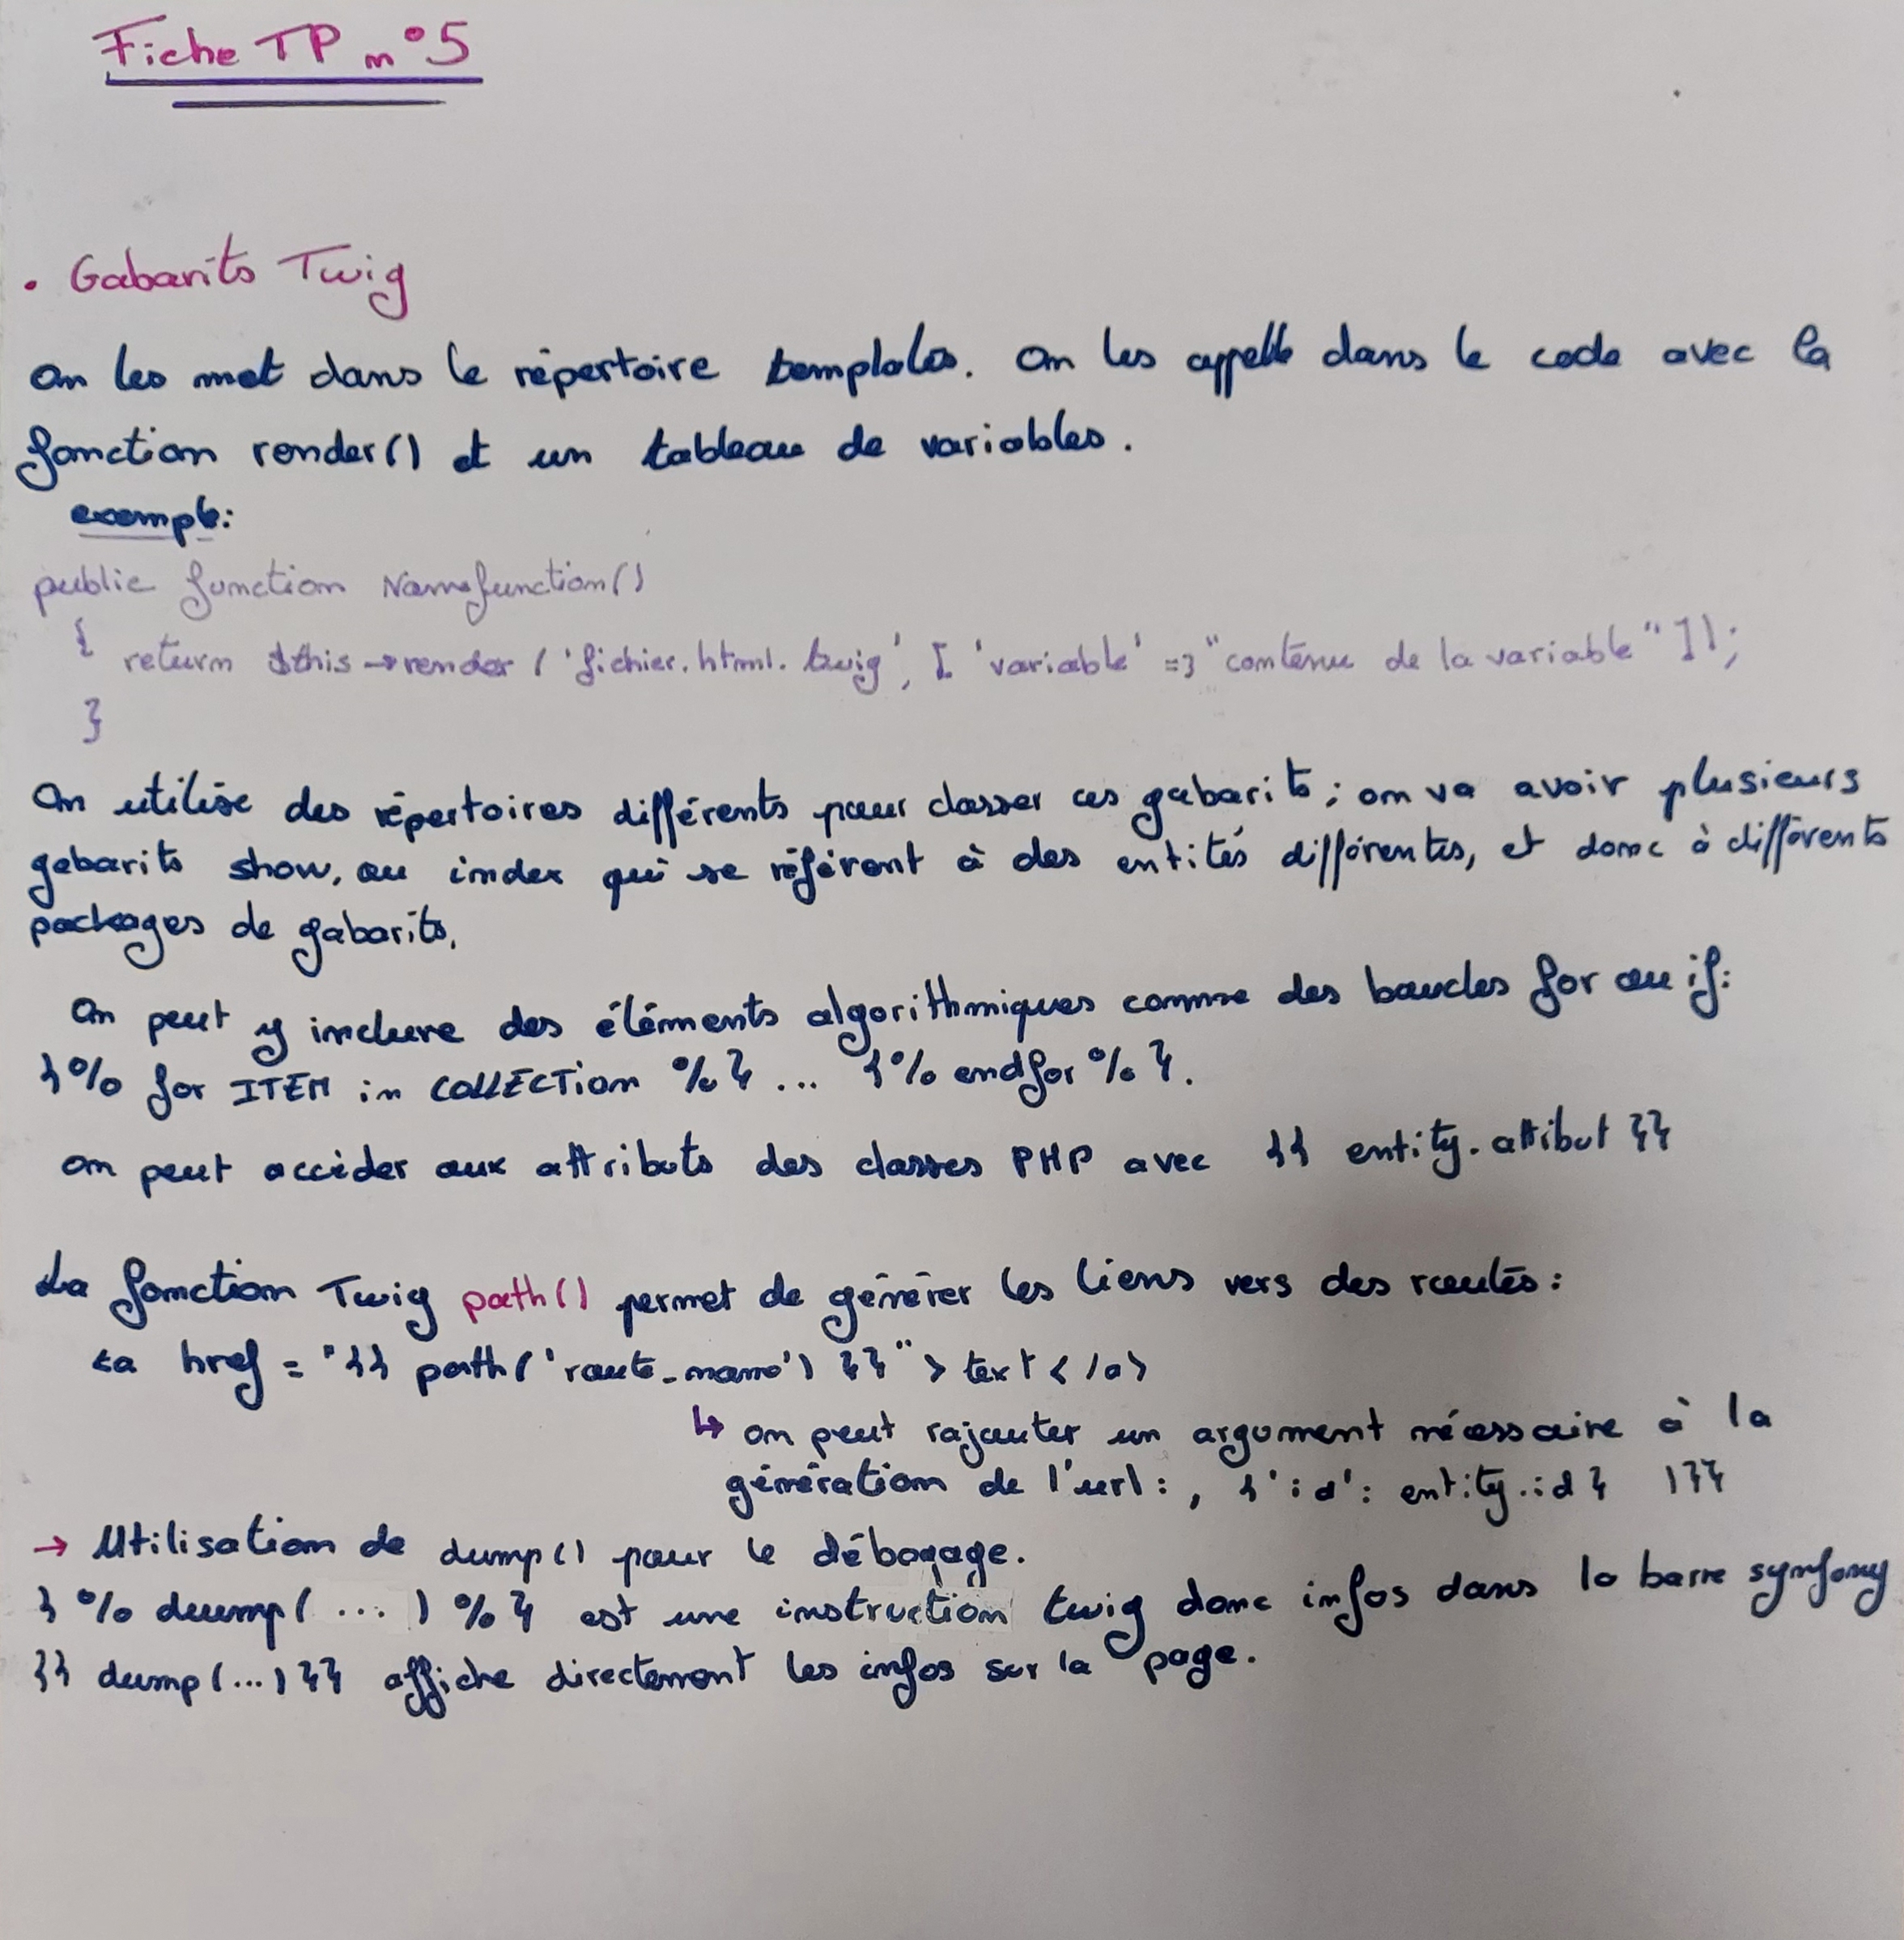 Fiche TP n°5
. Gabarits Twig
On les met dans le répertoire templates. On les appelle dans le code avec la
fonction render() et un tableau de variables.
exemple:
public function Namefunction()
{ return $this->render('fichier.html.twig', [ 'variable' => "contenu de la variable" ]);
}
On utilise des répertoires différents pour classer ces gabarits; on va avoir plusieurs
gabarits show, ou index qui se réfèrent à des entités différentes, et donc à différents
packages de gabarits.
On peut y inclure des éléments algorithmiques comme des boucles for ou if:
{% for ITEM in COLLECTION %} ... {% endfor %}.
on peut accéder aux attributs des classes PHP avec {{ entity.attibut }}
La fonction Twig path() permet de générer les liens vers des routes:
<a href = "{{ path('route_name') }}" > text </a>
↳ on peut rajouter un argument nécessaire à la
génération de l'url: , {'id': entity.id } )}}
→ Utilisation de dump() pour le débogage.
{% dump( ... ) %} est une instruction twig donc infos dans la barre symfony
{{ dump(...) }} affiche directement les infos sur la page.